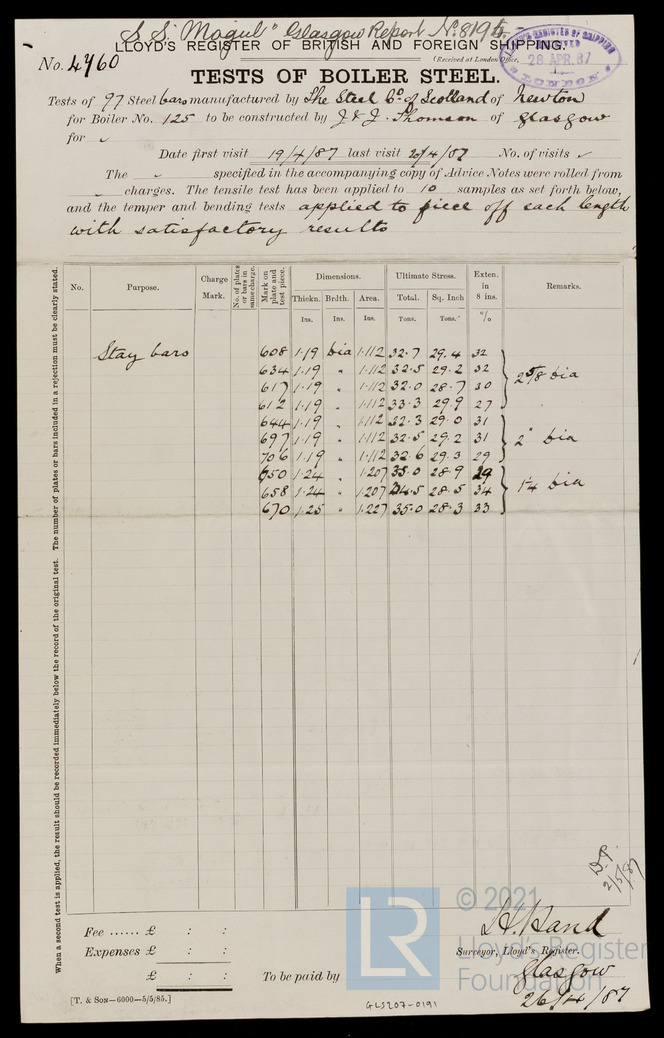 S.S. "Mogul" Glasgow Report No. 8195
LLOYD'S REGISTER OF BRITISH AND FOREIGN SHIPPING.
LLOYD'S REGISTER OF SHIPPING
28 APR. 87
LONDON
No. 4760
(Received at London Office,
TESTS OF BOILER STEEL.
Tests of 97 Steel bars manufactured by The Steel Co. of Scotland of Newton
for Boiler No. 125 to be constructed by J. & J. Thomson of Glasgow
for
Date first visit 19/4/87 last visit 20/4/87 No. of visits
The specified in the accompanying copy of Advice Notes were rolled from
charges. The tensile test has been applied to 10 samples as set forth below,
and the temper and bending tests applied to piece off each length
with satisfactory results
When a second test is applied, the result should be recorded immediately below the record of the original test. The number of plates or bars included in a rejection must be clearly stated.
No. Purpose. Charge Mark. No. of plates or bars in same charge. Mark on plate and test piece. Dimensions. Ultimate Stress. Exten. in 8 ins. Remarks.
Thickn. Brdth. Area. Total. Sq. Inch
Ins. Ins. Ins. Tons. Tons. %
Stay bars 608 1.19 dia 1.112 32.7 29.4 32
634 1.19 " 1.112 32.5 29.2 32
2 5/8 dia
617 1.19 " 1.112 32.0 28.7 30
612 1.19 " 1.112 33.3 29.9 27
644 1.19 " 1.112 32.3 29.0 31
697 1.19 " 1.112 32.5 29.2 31 2" dia
706 1.19 " 1.112 32.6 29.3 29
650 1.24 " 1.207 35.0 28.9 29
658 1.24 " 1.207 34.5 28.5 34 1¼ dia
670 1.25 " 1.227 35.0 28.3 33
2/5/87
Fee ...... £ : :
Expenses £ : :
£ : :
To be paid by
H. Hand
Surveyor, Lloyd's Register.
Glasgow
26/4/87
[T. & SON—6000—5/5/85.]
GLS207-0191
LR
© 2021
Lloyd's Register
Foundation